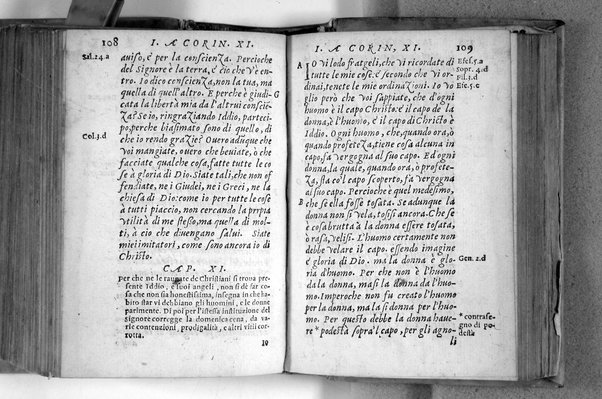 108 I. A CORIN. XI.
Sal.24.a
auiso, è per la conscienza. Percioche
del Signore è la terra, è ciò che v'è en-
tro. Io dico conscienza, non la tua, ma
quella di quell'altro. E perche è giudi-
G
cata la libertà mia da l'altrui conscien-
za? Se io, ringraziando Iddio, parteci-
po, perche biasimato sono di quello, di
Col.3.d
che io rendo grazie? Ouero adunque che
voi mangiate, ouero che beuiate, ò che
facciate qualche cosa, fatte tutte le co
se à gloria di Dio. Siate tali, che non of
fendiate, ne i Giudei, ne i Greci, ne la
chiesa di Dio: come io per tutte le cose
à tutti piaccio, non cercando la propria
vtilità di me stesso, ma quella di mol-
ti, à cio che diuengano salui. Siate
miei imitatori, come sono ancora io di
Christo.
CAP. XI.
per che ne le raunate de Christiani si troua pre
sente Iddio, e i suoi angeli, non si dè far co
sa che non sia honestissima, insegna in che ha-
bito star vi debbiano gli huomini, e le donne
parimente. Di poi per l'istessa instituzione del
signore corregge la domenica cena, da va-
rie contenzioni, prodigalità, e altri vitii cor-
rotta.
IO
I. A CORIN. XI. 109
A
IO vi lodo frategli, che vi ricordate di
Efes.5.a
tutte le mie cose. è secondo che vi or-
Sopr.4.d
dinai, tenete le mie ordinazioni. Io vo
Fil.3.d
glio però che voi sappiate, che d'ogni
Efe.5.c
huomo è il capo Christo: è il capo de la
donna, è l'huomo, è il capo di Christo è
Iddio. Ogni huomo, che, quando ora, ò
quando profeteza, tiene cosa alcuna in
capo, fa vergogna al suo capo. Ed ogni
donna, la quale, quando ora, ò profete-
za, sta co'l capo scoperto, fa vergogna
al suo capo. Percioche è quel medesimo,
B
che se ella fosse tosata. Se adunque la
donna non si vela, tosisi ancora. Che se
è cosa brutta à la donna essere tosata,
ò rasa, velisi. L'huomo certamente non
debbe velare il capo. essendo imagine
è gloria di Dio. ma la donna è glo-
Gen.2.d
ria d'huomo. Per che non è l'huomo
da la donna, ma si la donna da l'huo-
mo. Imperoche non fu creato l'huomo
per la donna, ma la donna per l'huo-
mo. Per questo debbe la donna haue-
re * podestà sopra'l capo, per gli agno-
* contrase-
gno di po-
destà
li